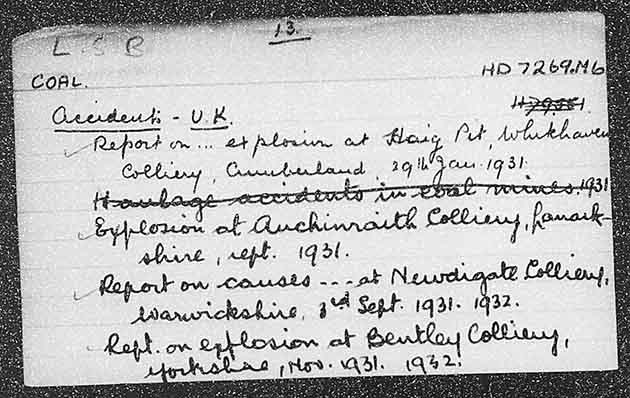 13.
L S B
COAL.
HD 7269.M6
Accidents - U.K.
Report on... explosion at Haig Pit, Whitehaven
Colliery, Cumberland, 29th Jan. 1931.
Haulage accidents in coal mines. 1931
Explosion at Auchinraith Colliery, Lanark-
shire, rept. 1931.
Report on causes --- at Newdigate Colliery,
Warwickshire, 3rd Sept. 1931. 1932.
Rept. on explosion at Bentley Colliery,
Yorkshire, Nov. 1931. 1932.